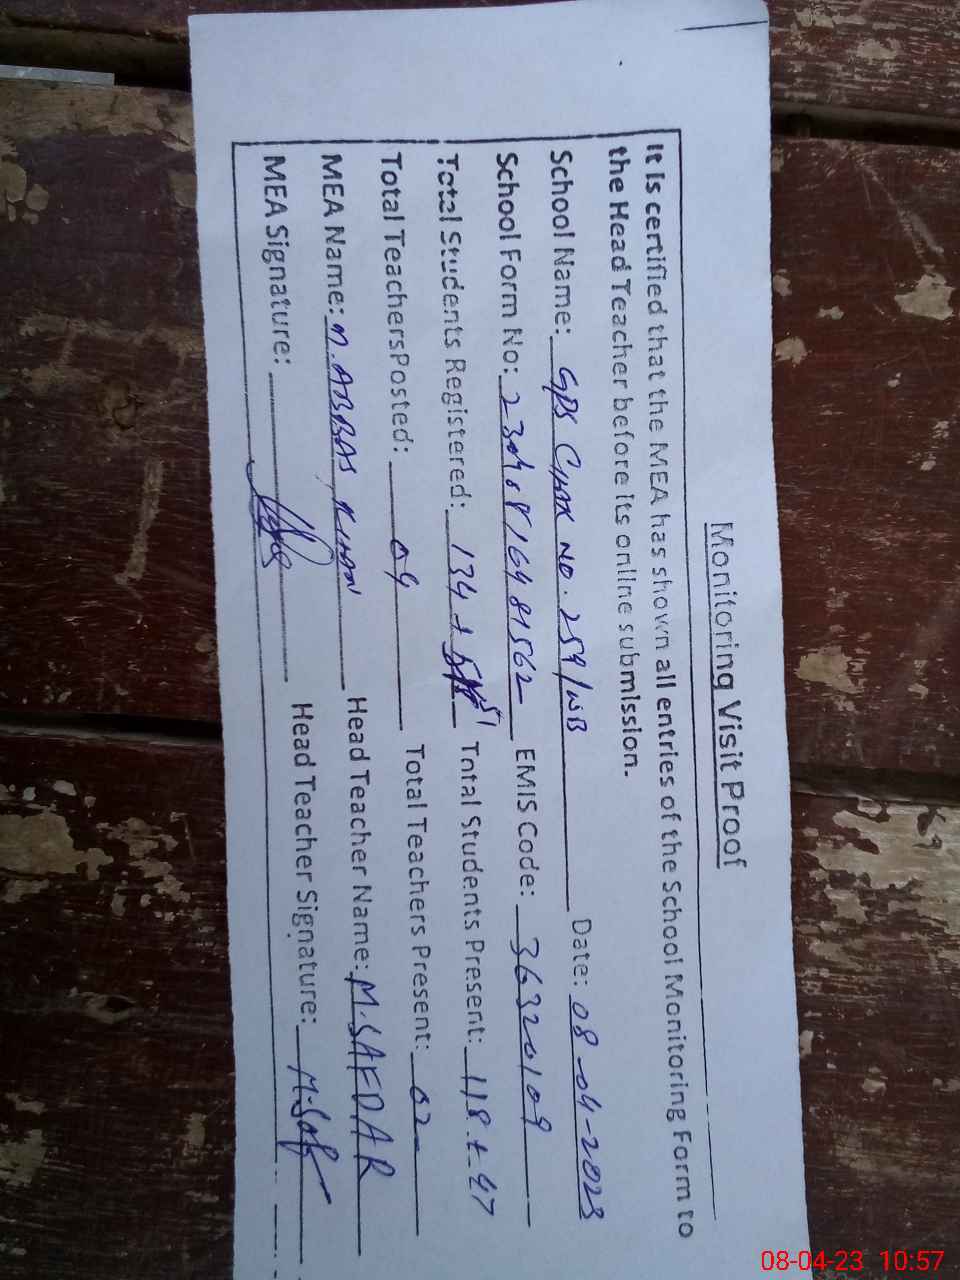 Monitoring Visit Proof
It is certified that the MEA has shown all entries of the School Monitoring Form to
the Head Teacher before its online submission.
School Name: GPS Chak No. 259/WB Date: 08-04-2023
School Form No: EMIS Code: 36320109
Total Students Registered: 134 + 51 Total Students Present: 118 + 47
Total Teachers Posted: 04 Total Teachers Present: 02
MEA Name: M. ABBAS KHAN Head Teacher Name: M. SAFDAR
MEA Signature: Head Teacher Signature: M. Saf
08-04-23 10:57